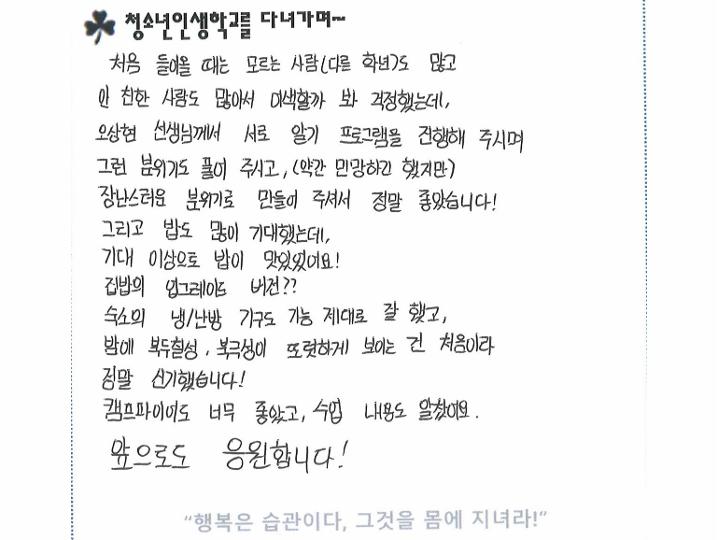 청소년인생학교를 다녀가며~
처음 들어올 때는 모르는 사람(다른 학년)도 많고
안 친한 사람도 많아서 어색할까 봐 걱정했는데,
오상현 선생님께서 서로 알기 프로그램을 진행해 주시며
그런 분위기도 풀어 주시고, (약간 민망하긴 했지만)
장난스러운 분위기로 만들어 주셔서 정말 좋았습니다!
그리고 밥도 많이 기대했는데,
기대 이상으로 밥이 맛있었어요!
집밥의 업그레이드 버전??
숙소의 냉/난방 기구도 기능 제대로 잘 했고,
밤에 북두칠성, 북극성이 또렷하게 보이는 건 처음이라
정말 신기했습니다!
캠프파이어도 너무 좋았고, 수업 내용도 알찼어요.
앞으로도 응원합니다!
"행복은 습관이다, 그것을 몸에 지녀라!"